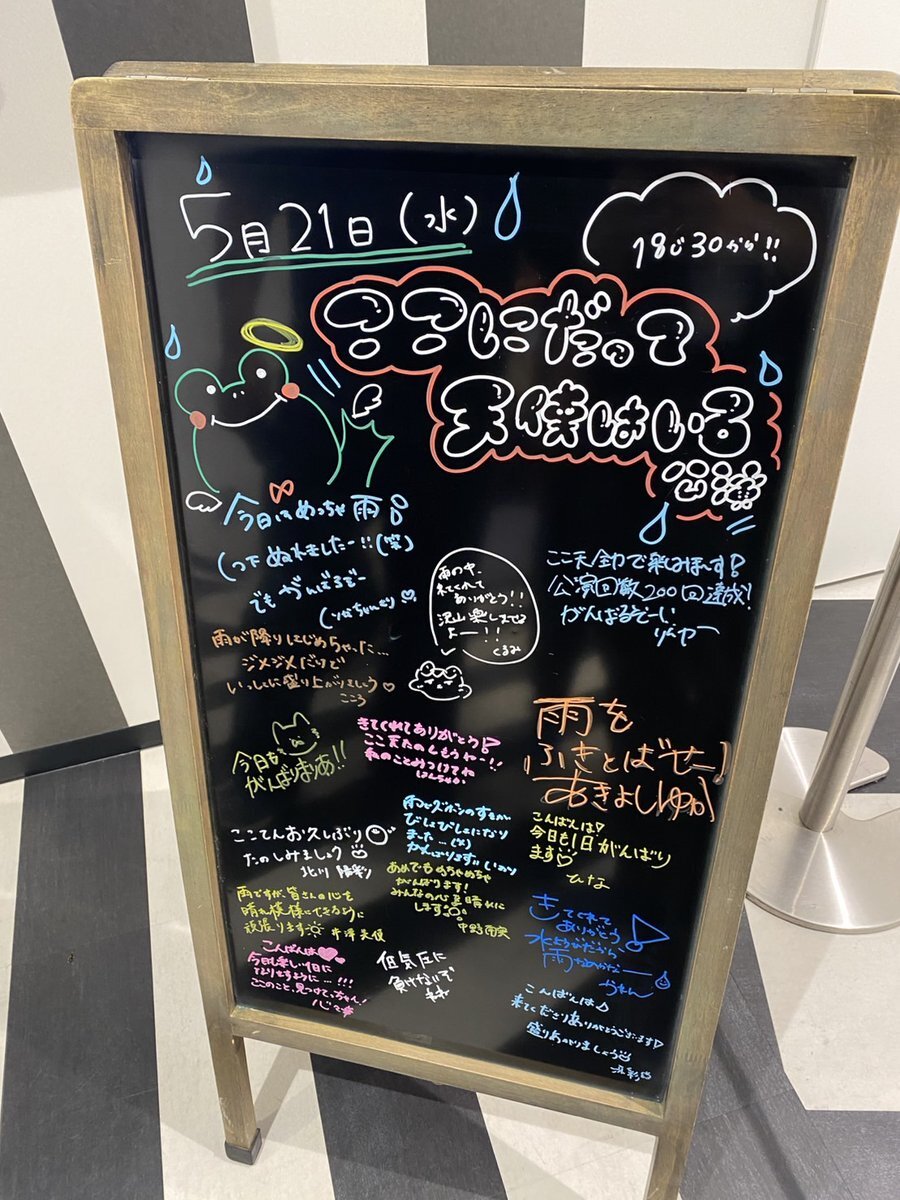 5月21日(水)
18じ30から!!
ここにだって
天使はいる
公演
今日はめっちゃ雨
くつ下ぬれましたー!!(笑)
でもがんばるぞー
あのサ、
来てくれて
ありがとう!!
沢山楽しませる
よー!!
くるみ
公演回数200回達成!
がんばるぞーい
りーやー
雨が降りはじめちゃった…
ジメジメだけど
いっしょに盛り上がりましょう
こころ
今日も
がんばりまりあ!!
きてくれてありがとう!
ここ天たのしもうねー!!
私のことみつけてね
雨を
ふきとばせー!
あきよしゆか
ここてんお久しぶり
たのしみましょう
北川 陽彩
雨でズボンのすそが
びしょびしょになり
ました…(笑)
がんばります
こんばんは
今日も1日がんばり
ます♡
ひな
雨ですが、皆さんの心を
晴れ模様にできるように
頑張ります
あめでもめちゃめちゃ
がんばります!
みんなの心を晴れに
します
きてくれて
ありがとう
水ようびだから
雨なのかなー
かれん
こんばんは
今日も楽しい1日に
なりますように…!!!
ここのこと、見つけてっちゃん!
低気圧に
負けないぞ
こんばんは♪
来てくださりありがとうございます!
盛りあがりましょう